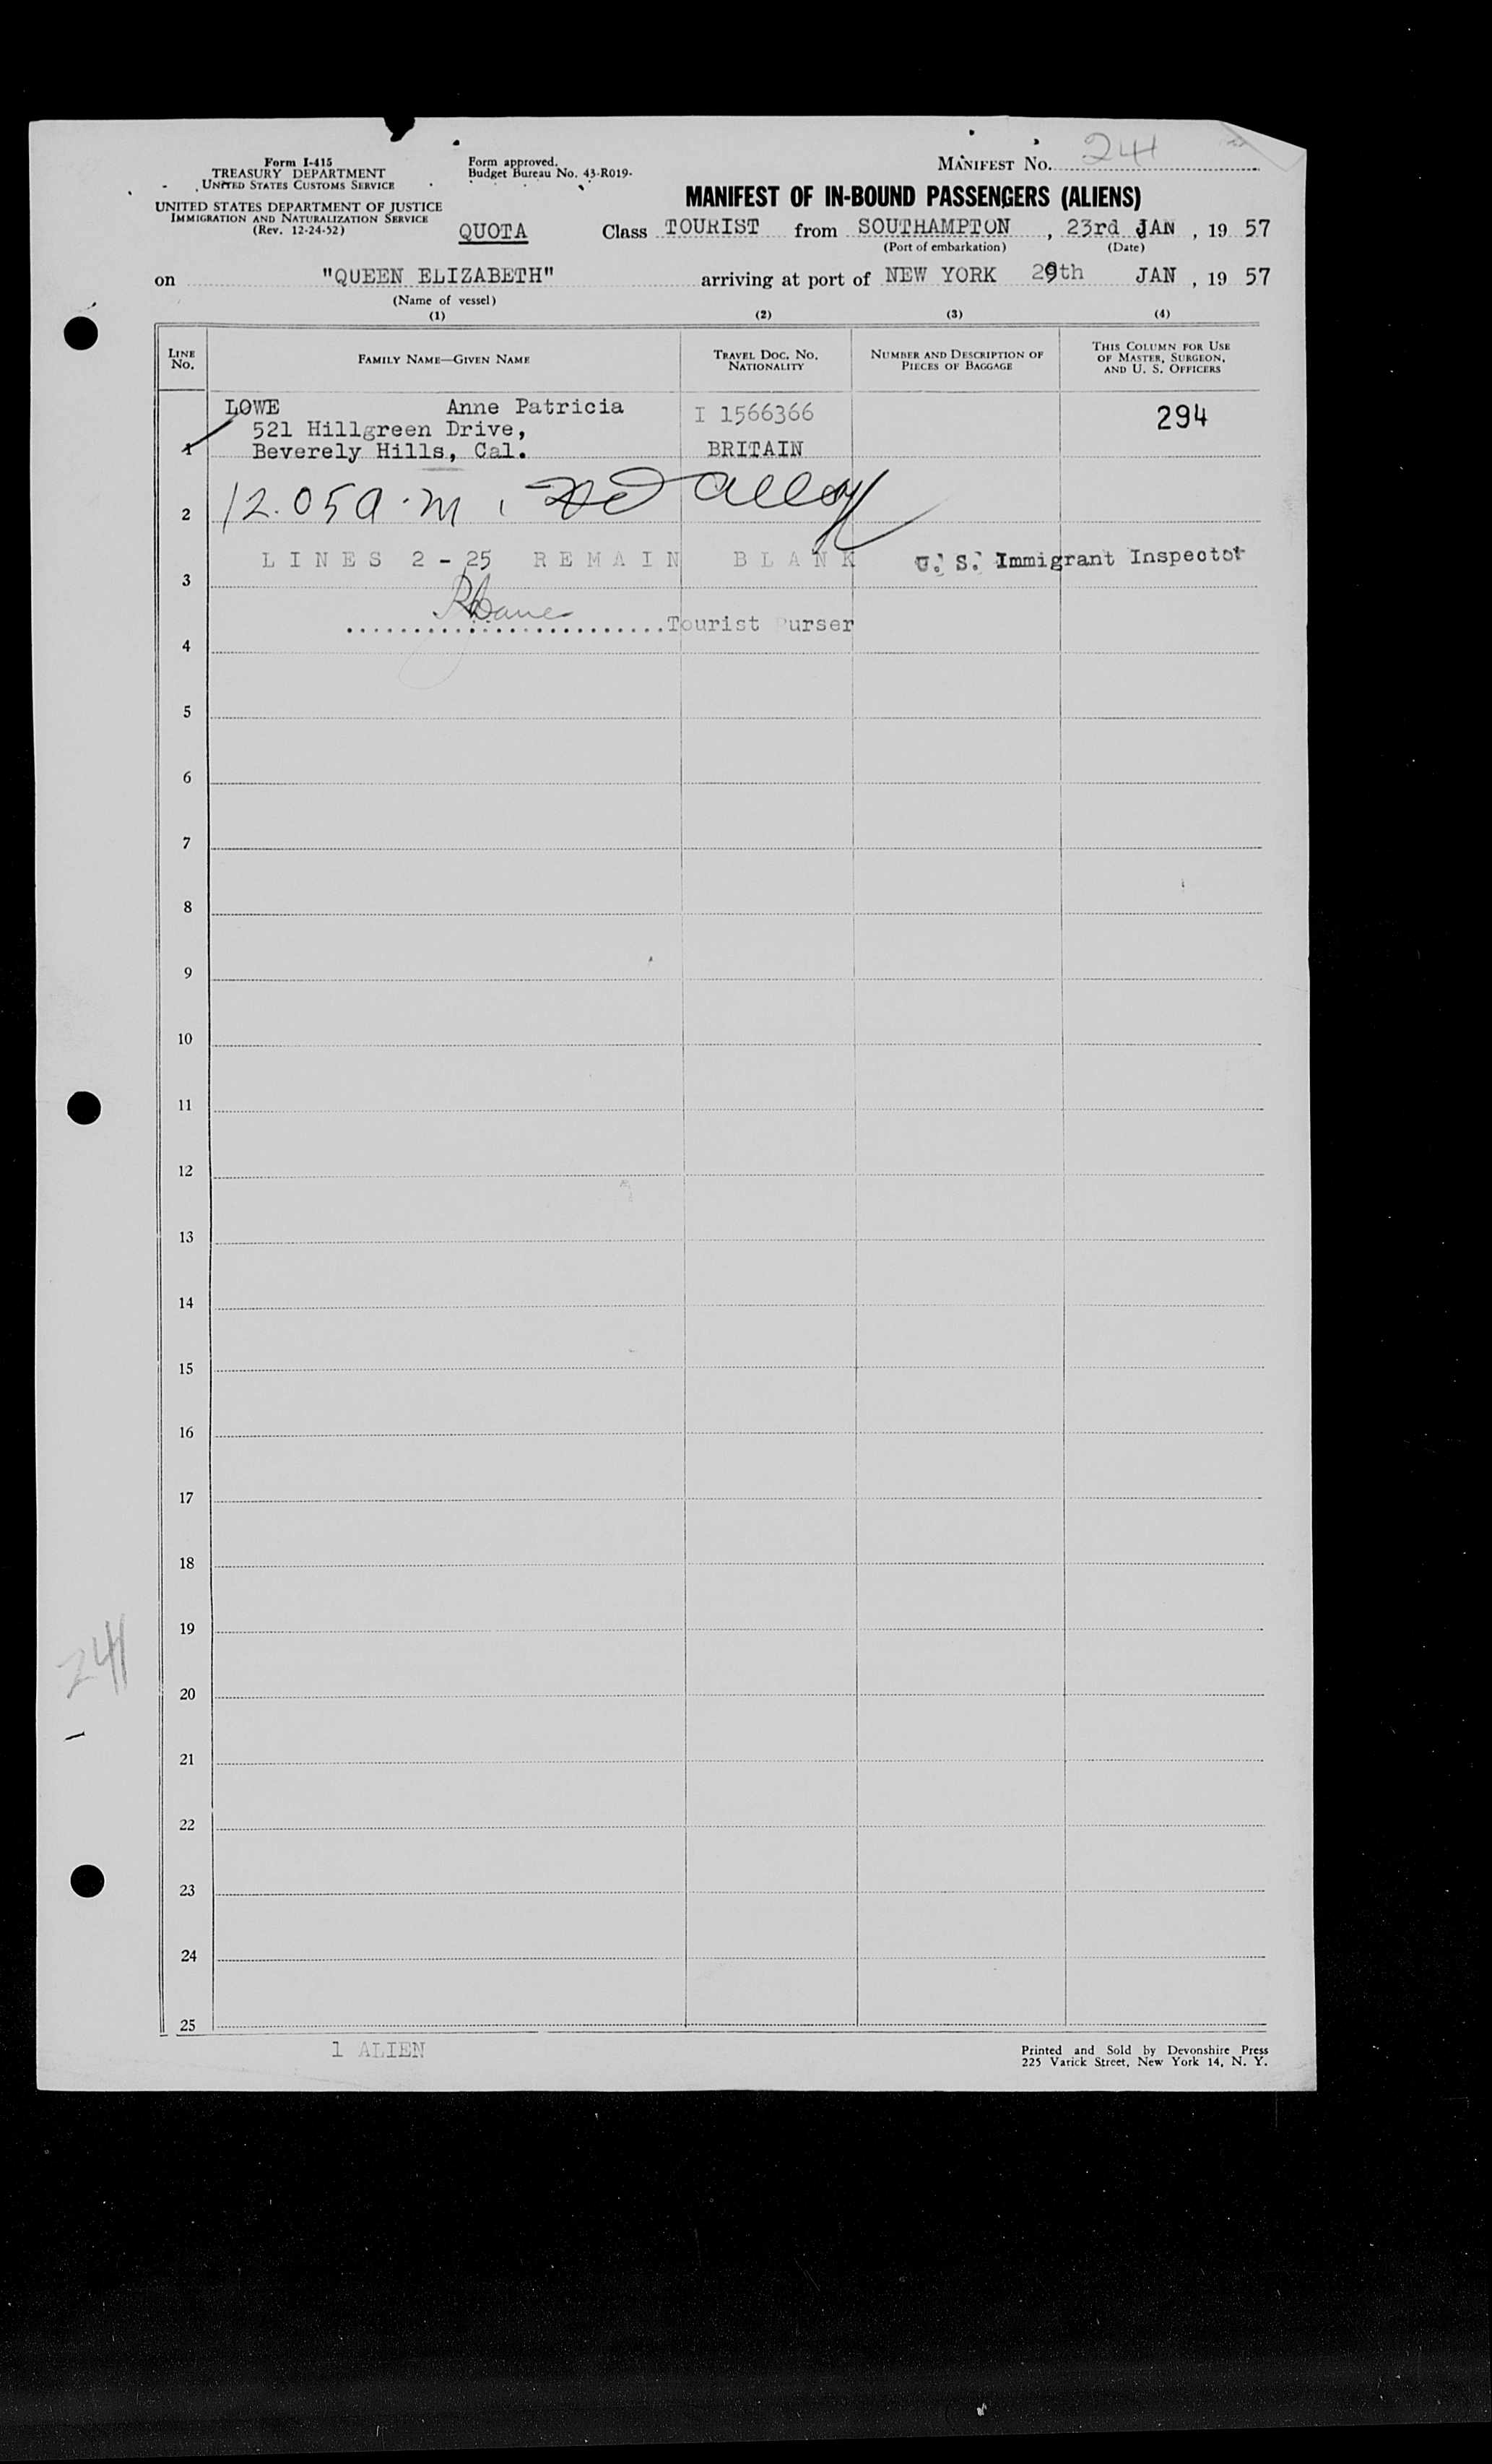 Form I-415
TREASURY DEPARTMENT
UNITED STATES CUSTOMS SERVICE
UNITED STATES DEPARTMENT OF JUSTICE
IMMIGRATION AND NATURALIZATION SERVICE
(Rev. 12-24-52)
Form approved.
Budget Bureau No. 43-R019-
MANIFEST No. 241
MANIFEST OF IN-BOUND PASSENGERS (ALIENS)
QUOTA Class TOURIST from SOUTHAMPTON, 23rd JAN, 19 57
(Port of embarkation) (Date)
on "QUEEN ELIZABETH" arriving at port of NEW YORK 29th JAN, 19 57
(Name of vessel)
(1) (2) (3) (4)
LINE No. FAMILY NAME—GIVEN NAME TRAVEL DOC. No. NATIONALITY NUMBER AND DESCRIPTION OF PIECES OF BAGGAGE THIS COLUMN FOR USE OF MASTER, SURGEON, AND U. S. OFFICERS
LOWE Anne Patricia I 1566366 294
521 Hillgreen Drive,
1 Beverely Hills, Cal. BRITAIN
2 12.05 a.m.
LINES 2 - 25 REMAIN BLANK U. S. Immigrant Inspector
3
Tourist Purser
4
5
6
7
8
9
10
11
12
13
14
15
16
17
18
19
241
20
21
22
23
24
25
1 ALIEN
Printed and Sold by Devonshire Press
225 Varick Street, New York 14, N. Y.